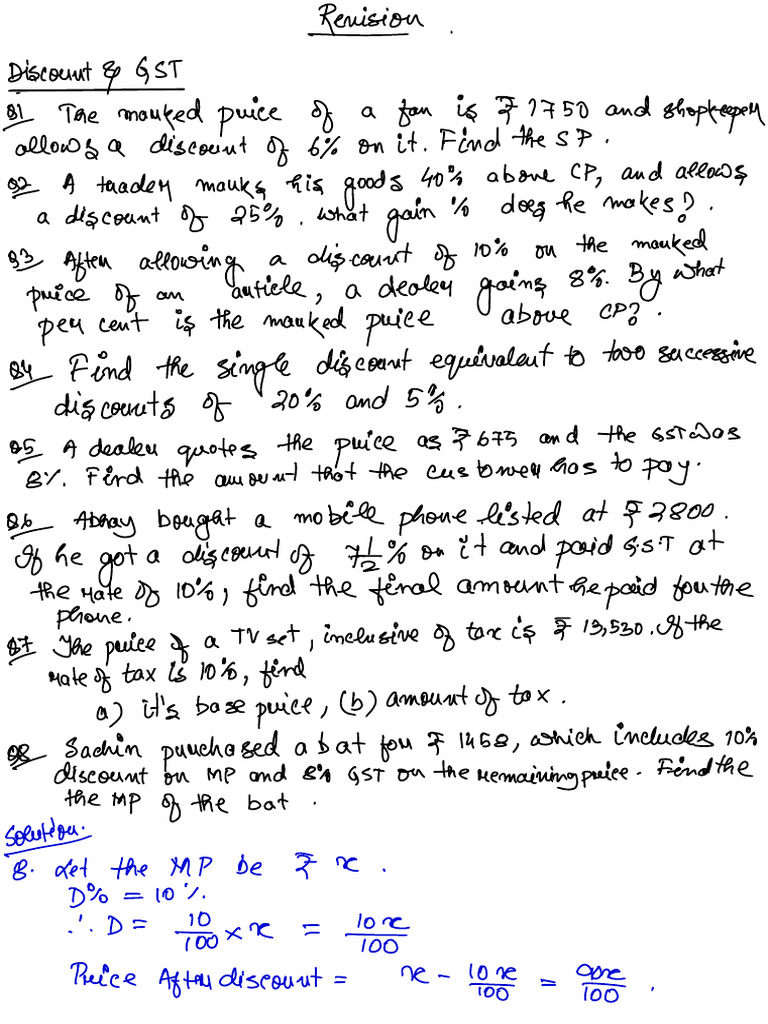 Revision.
Discount & GST
Q1 The marked price of a fan is ₹1750 and shopkeeper
allows a discount of 6% on it. Find the SP.
Q2 A trader marks his goods 40% above CP, and allows
a discount of 25%. what gain % does he makes?.
Q3 After allowing a discount of 10% on the marked
price of an article, a dealer gains 8%. By what
per cent is the marked price above CP?.
Q4 Find the single discount equivalent to two successive
discounts of 20% and 5%.
Q5 A dealer quotes the price as ₹675 and the GST was
8%. Find the amount that the customer has to pay.
Q6 Abhay bought a mobile phone listed at ₹2800.
If he got a discount of 7 1/2 % on it and paid GST at
the rate of 10%, find the final amount he paid for the
phone.
Q7 The price of a TV set, inclusive of tax is ₹13,530. If the
rate of tax is 10%, find
a) it's base price, (b) amount of tax.
Q8 Sachin purchased a bat for ₹1458, which includes 10%
discount on MP and 8% GST on the remaining price. Find the
the MP of the bat.
Solution.
8. Let the MP be ₹ x.
D% = 10%
∴ D = 10/100 × x = 10x/100
Price After discount = x - 10x/100 = 90x/100.